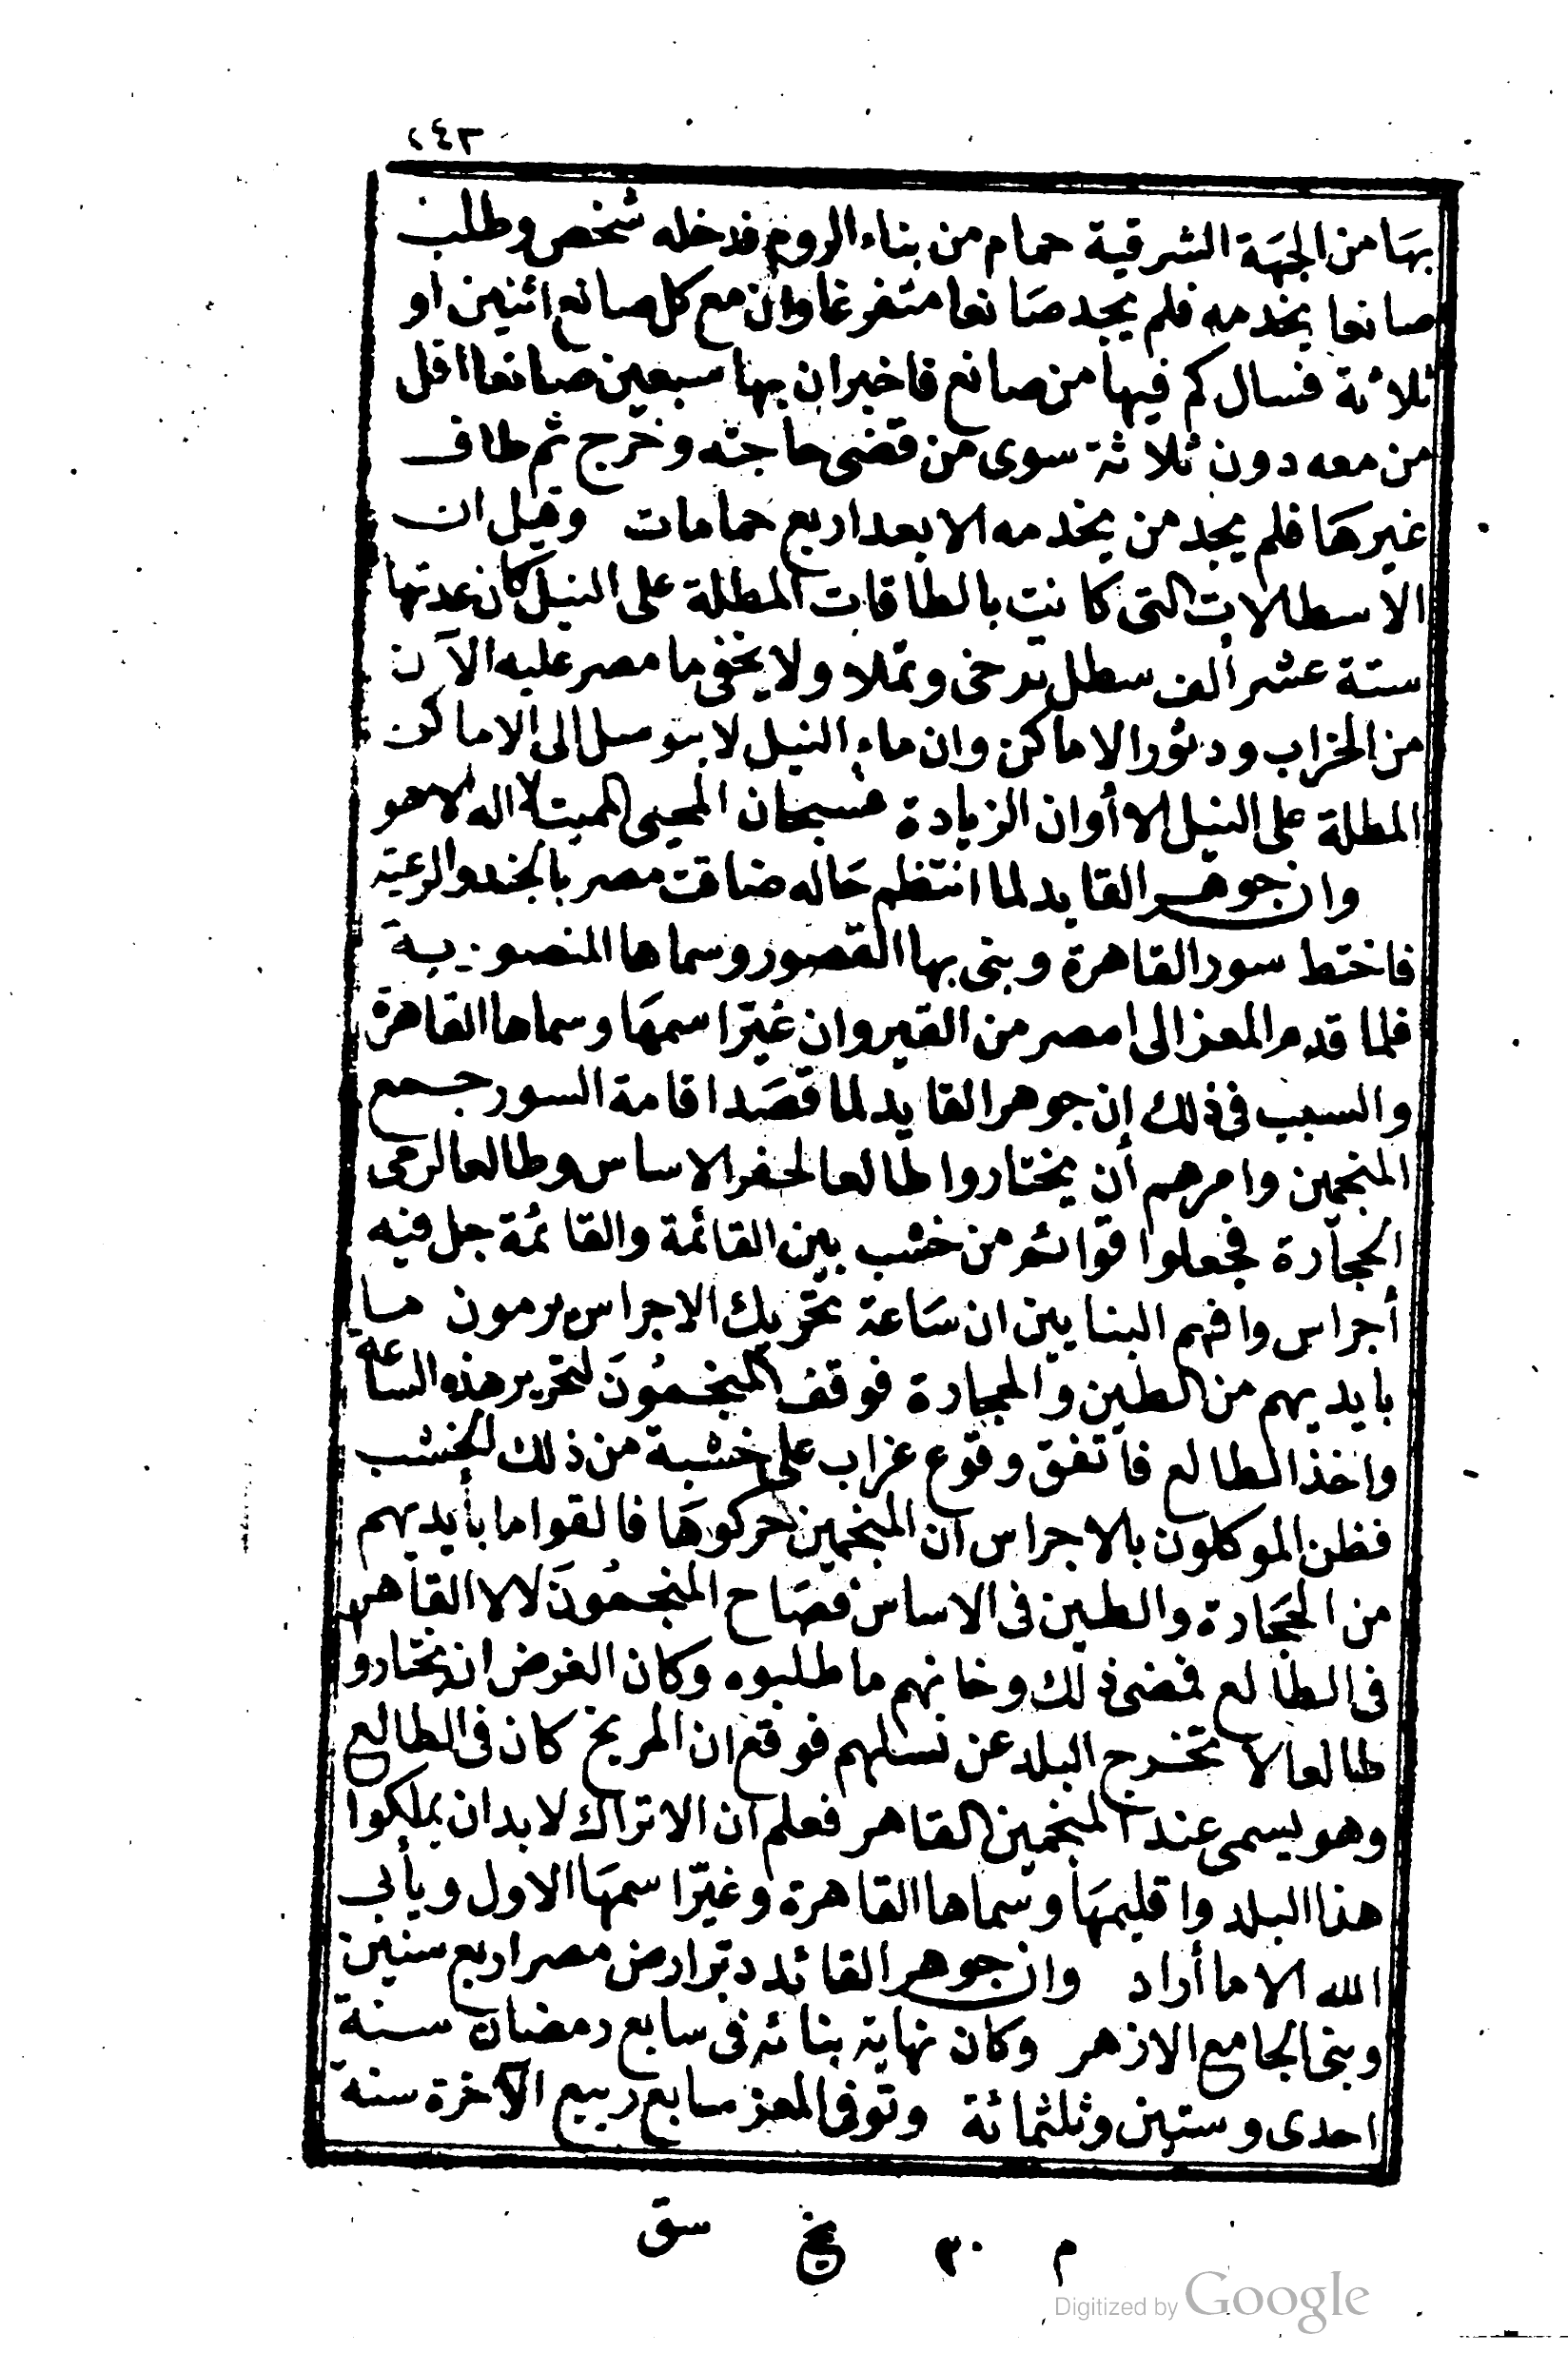 ٢٤٣
بهَا من الجهَة الشرقية حمام من بناء الروم فدخله شخص وطلب
صانعا يخدمه فلم يجد صَانعا متفرغا وان مع كل صانع اثنين او
ثلاثة فسال كم فيها من صانع فاخبران بها سبعين صانعا اقل
من معه دون ثلاثة سوى من قضى حاجته وخرج ثم طاف
غيرهَا فلم يجد من يخدمه الا بعد اربع حمامات وقيل ان
الاسطالات التى كانت بالطاقات المطلة على النيل كان عدتها
ستة عشر ألف سطل ترخى وتملا ولا يخفى ما مصر عليه الآن
من الخراب ودثور الاماكن وان ماء النيل لا يتوسل الى الاماكن
المطلة على النيل الا أوان الزيادة فسبحان المحيى المميت لا اله الا هو
وان جوهر القايد لما انتظم حَاله ضاقت مصر بالجند والرعية
فاختط سور القاهرة وبنى بها القصور وسماها المنصورية
فلما قدم المعز الى امصر من القيروان غيّر اسمهَا وسماها القاهرة
والسبب فى ذلك إن جوهر القايد لما قصَد اقامة السور جمع
المنجمين وامرهم أن يختاروا طالعا لحفر الاساس وطالعا لرمى
الحجارة فجعلوا قوائم من خشب بين القائمة والقائمة جل فيه
أجراس وافهم البنايين ان سَاعة تحريك الاجراس يرمون ما
بايديهم من الطين والحجارة فوقف المنجمُونَ لتحرير هذه الساعة
واخذ الطالع فاتفق وقوع غراب على خشبة من ذلك الخشب
فظن الموكلون بالاجراس أن المنجمين حركوهَا فالقوا ما بأيديهم
من الحجَارة والطين فى الاساس فصَاح المنجمُونَ لالا القاهر
فى الطالع فمضى ذلك وخانهم ما طلبوه وكان الغرض ان يختاروا
طالعا لا تخرج البلد عن نسلهم فوقع ان المريخ كان فى الطالع
وهو يسمى عند المنجمين القاهر فعلم أن الاتراك لابدان يملكوا
هذا البلد واقليمهَا وسماها القاهرة وغيّر اسمهَا الاول ويأبى
الله الا ما أراد وان جوهر القائد دبّر ارض مصر اربع سنين
وبنى الجامع الازهر وكان نهاية بنائه فى سابع رمضان سنة
احدى وستين وثلثمائة وتوفى المعز سابع ربيع الآخرة سنة
م ٣٠ يخ سق
Digitized by Google